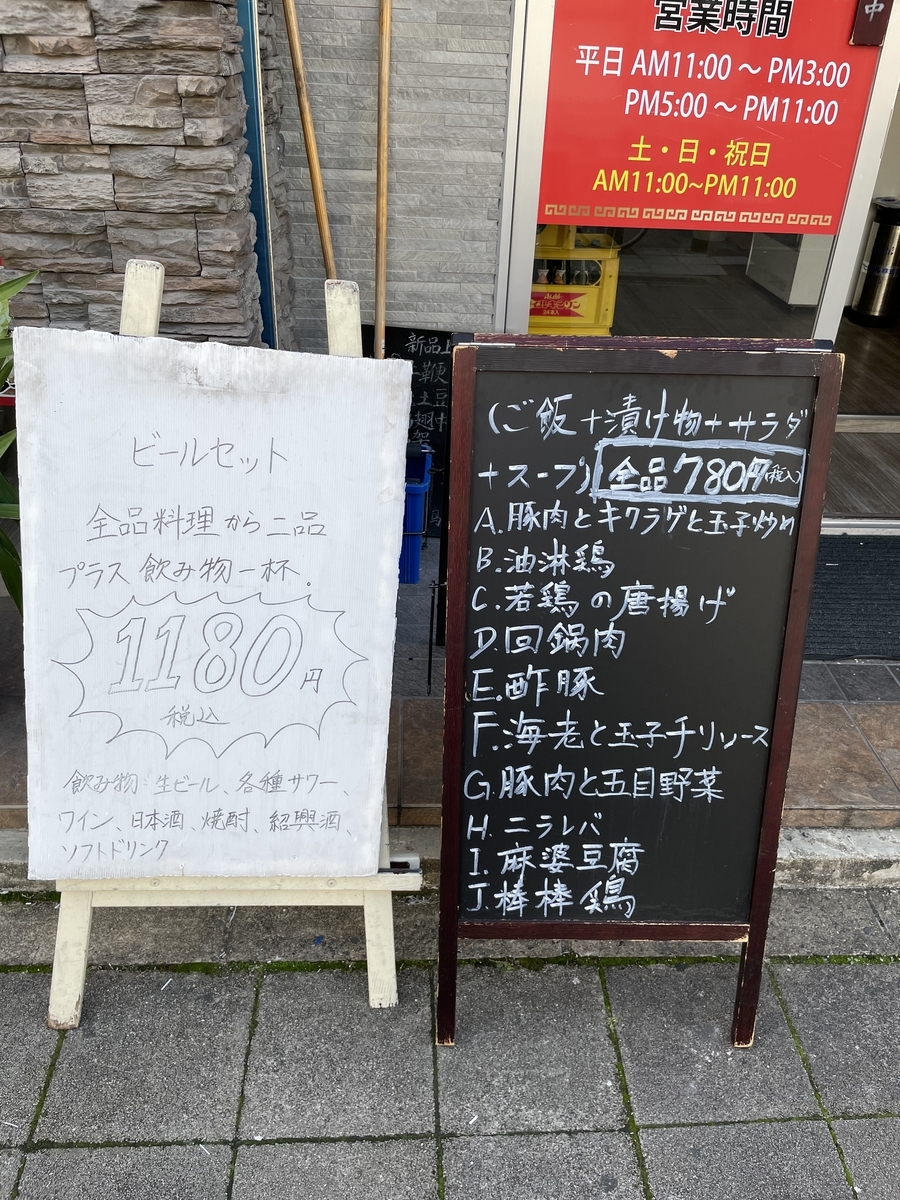 営業時間
平日 AM11:00 ～ PM3:00
PM5:00 ～ PM11:00
土・日・祝日
AM11:00~PM11:00
中
ビールセット
全品料理から二品
プラス 飲み物一杯.
1180円
税込
飲み物:生ビール、各種サワー、
ワイン、日本酒、焼酎、紹興酒、
ソフトドリンク
新品上
鞭
土豆
翅中
架
(ご飯+漬け物+サラダ
+スープ) 全品780円(税込)
A.豚肉とキクラゲと玉子炒め
B.油淋鶏
C.若鶏の唐揚げ
D.回鍋肉
E.酢豚
F.海老と玉子チリソース
G.豚肉と五目野菜
H.ニラレバ
I.麻婆豆腐
J.棒棒鶏